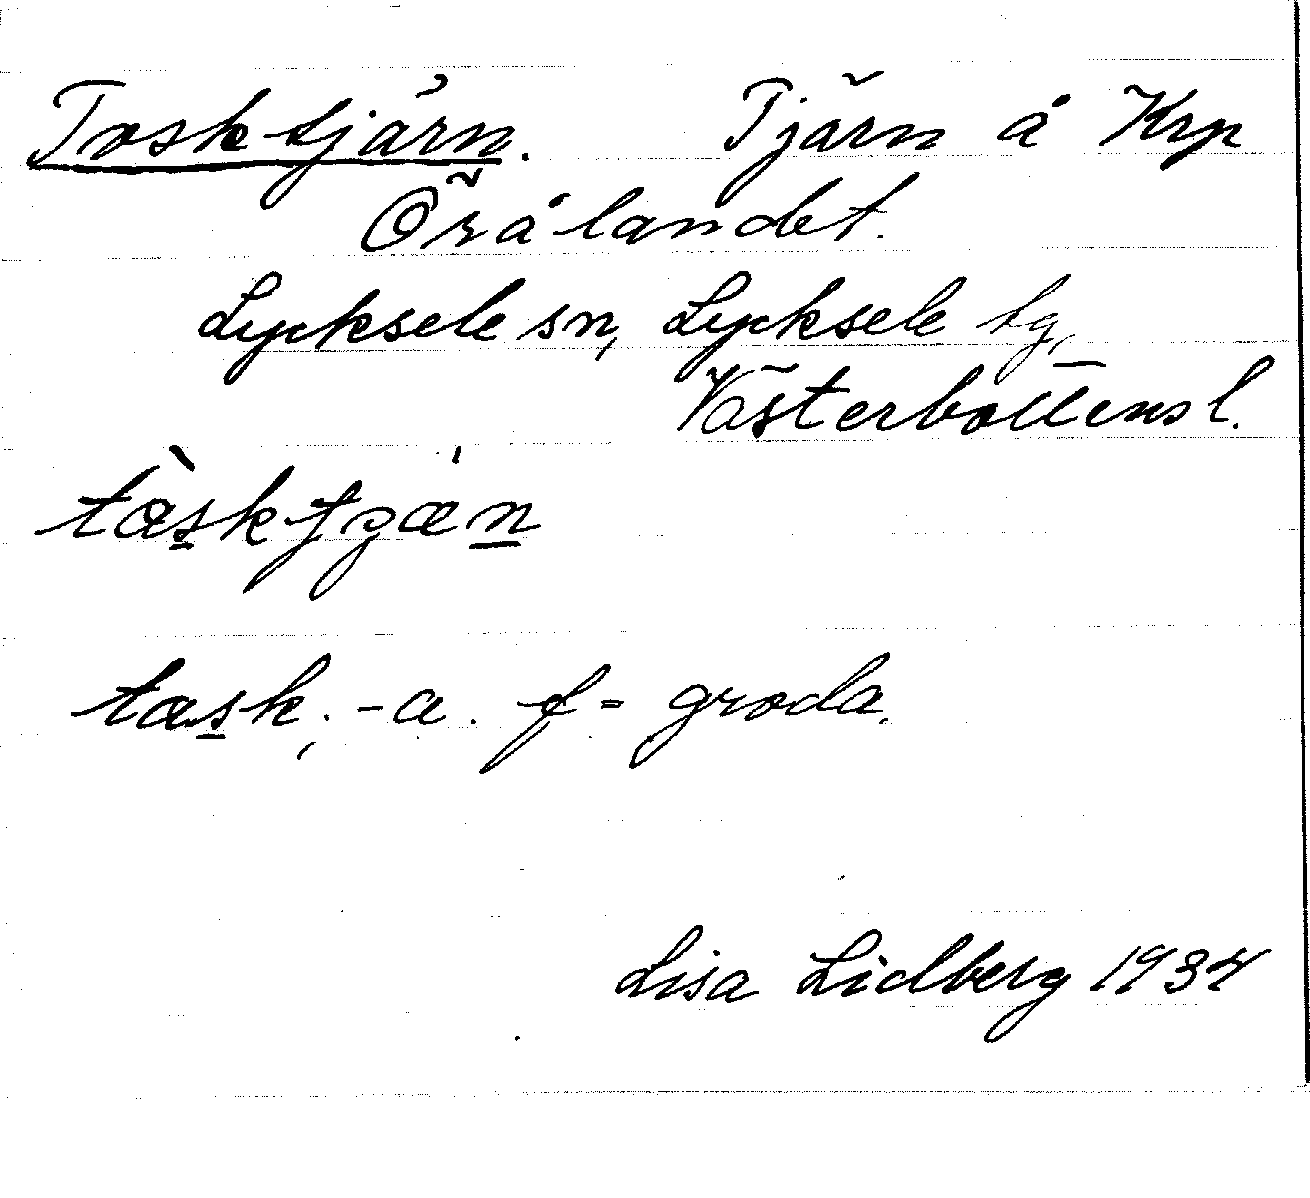 Tosktjärn. Tjärn å Krp
Örålandet.
Lycksele sn, Lycksele tg,
Västerbottens l.
task, -a. f = groda.
Lisa Lidberg 1934